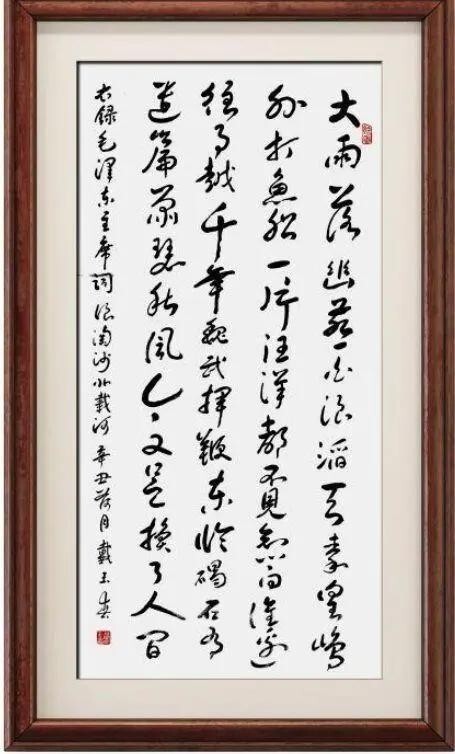 大雨落幽燕白浪滔天秦皇嶋
外打魚船一片汪洋都不見知向誰邊
往事越千年魏武揮鞭東臨碣石有
遺篇蕭瑟秋風今又是換了人間
右録毛澤東主席詞浪淘沙北戴河 辛丑荷月 戴玉